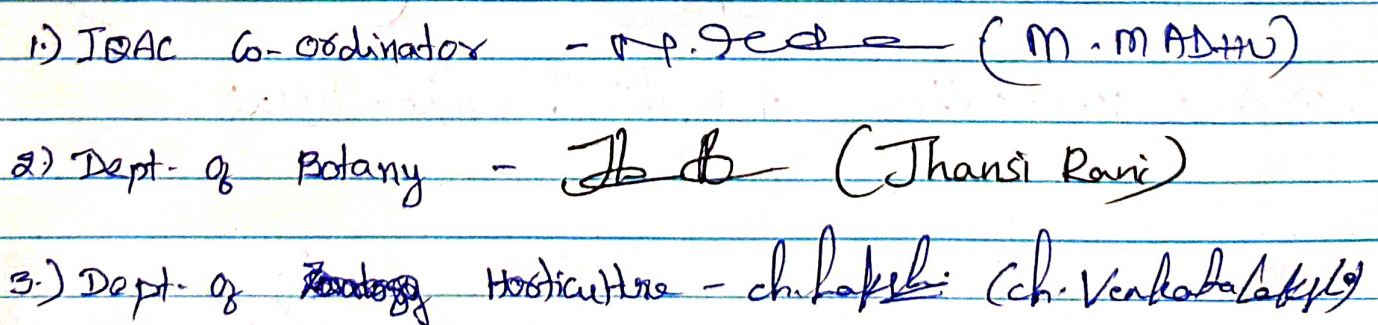 1.) IQAC Co-ordinator - (M. MADHU)
2) Dept. of Botany - (Jhansi Rani)
3.) Dept. of Horticulture - ch. Lakshmi (ch. Venkatalakshmi)